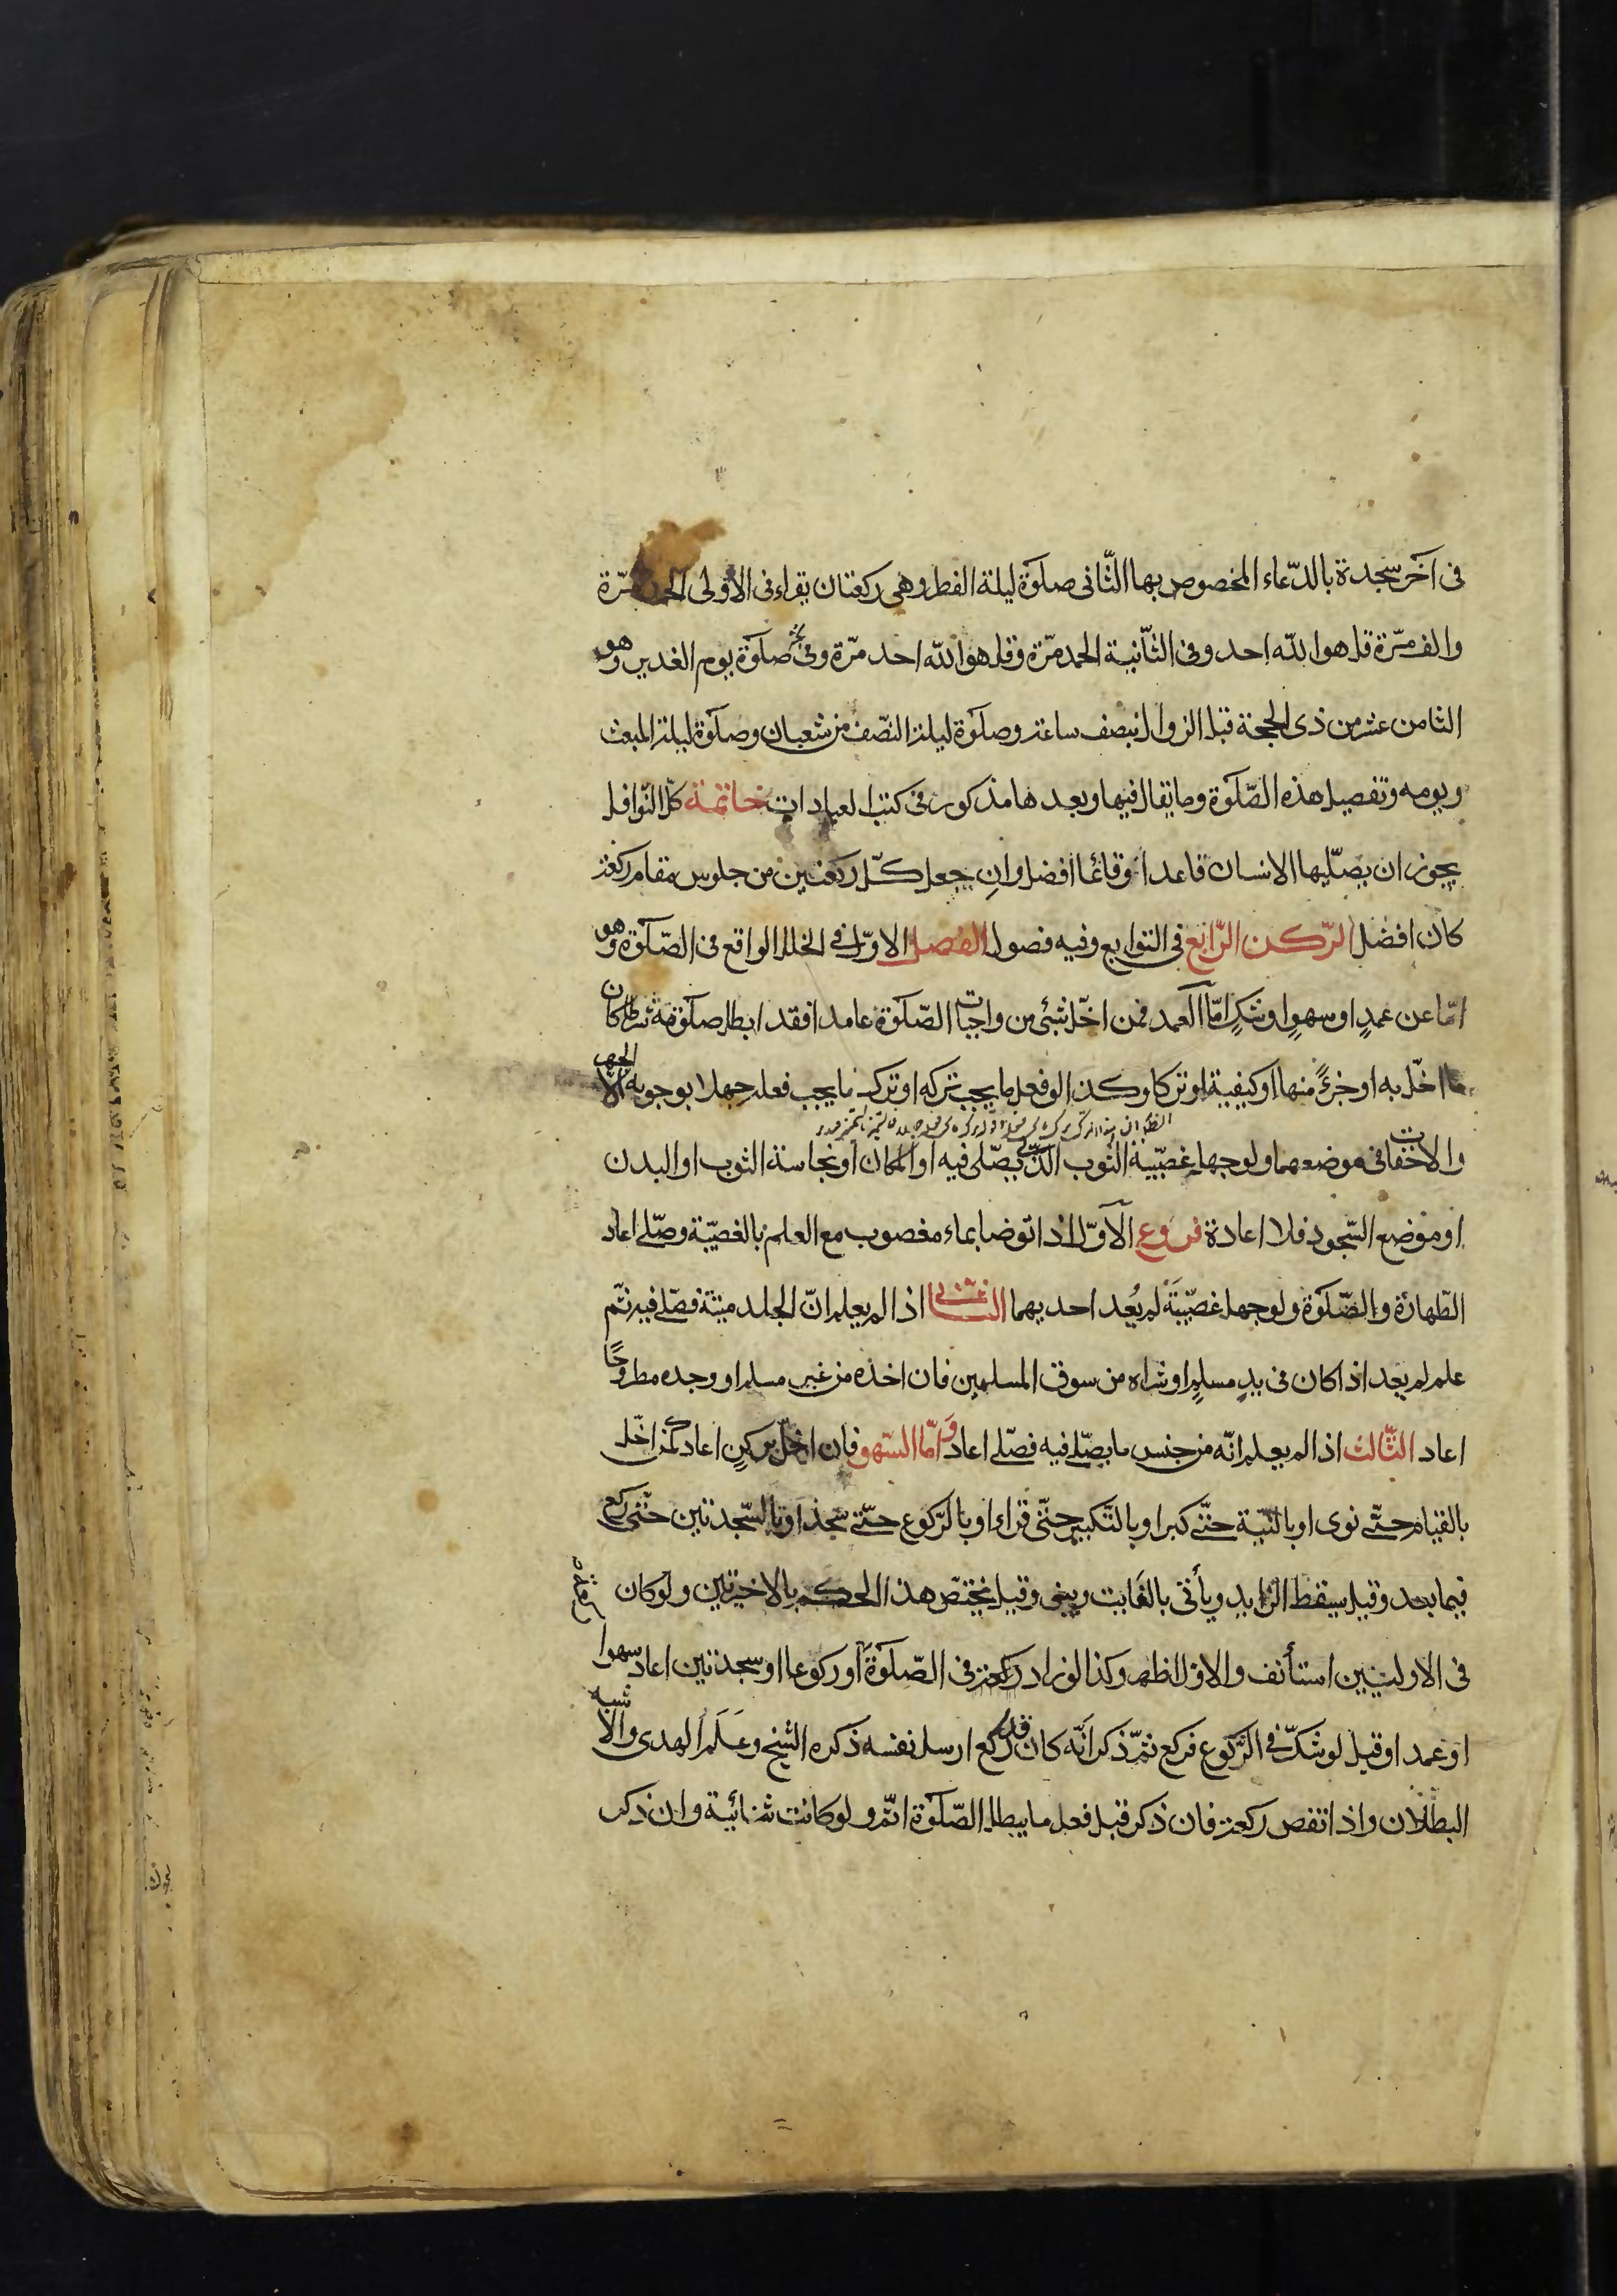 فى آخر سجدة بالدّعاء المخصوص بها الثّانى صلوة ليلة الفطر وهى ركعتان يقراء فى الاولى الحمد مرّة
والف مرّة قل هو اللّه احد وفى الثّانية الحمد مرّة وقل هو اللّه احد مرّة وفى صلوة يوم الغدير وهو
الثامن عشر من ذى الحجة قبل الزوال بنصف ساعة وصلوة ليلة النّصف من شعبان وصلوة ليلة المبعث
ويومه وتفصيل هذه الصّلوة وما يقال فيها وبعدها مذكور فى كتب العبادات خاتمة كلّ النّوافل
يجوز ان يصلّيها الانسان قاعدا وقائما افضل وان جعل كلّ ركعتين من جلوس مقام ركعة
كان افضل الرّكن الرّابع فى التوابع وفيه فصول الفصل الاوّل فى الخلل الواقع فى الصّلوة وهو
امّا عن عمدٍ او سهوٍ او شكٍ امّا العمد فمن اخلّ بشئ من واجبات الصّلوة عامدا فقد ابطل صلوته شرطا كان
ما اخلّ به او جزءً منها او كيفية او تركا وكذا لو فعل ما يجب تركه او ترك ما يجب فعله جهلا بوجوبه الّا الجهر
والاخفات فى موضعهما ولو جهل غصبيّة الثوب الّذى يصلّى فيه او المكان او نجاسة الثوب او البدن
او موضع السّجود فلا اعادة فروع الاوّل اذا توضا بماء مغصوب مع العلم بالغصبيّة وصلّى اعاد
الطّهارة والصّلوة ولو جهل غصبيّة لم يُعد احديهما الثّانى اذا لم يعلم انّ الجلد ميتة فصلّى فيه ثم
علم لم يعد اذا كان فى يد مسلمٍ او شراه من سوق المسلمين فان اخذه من غير مسلم او وجده مطروحًا
اعاد الثّالث اذا لم يعلم انّه من جنس ما يصلّى فيه فصلّى اعاد وامّا السّهو فان اخلّ بركنٍ اعاد كمن اخلّ
بالقيام حتّى نوى او بالنّيّة حتّى كبر او بالتّكبير حتّى قراء او بالرّكوع حتّى سجد او بالسّجدتين حتّى ركع
فيما بعد وقيل يسقط الزايد ويأتى بالفايت ويبنى وقيل يختصّ هذا الحكم بالاخيرتين ولو كان
فى الاوليين استأنف والاوّل اظهر وكذا لو زاد ركعة فى الصّلوة او ركوعا او سجدتين اعاد سهوا
او عمدا وقيل لو شكّ فى الرّكوع فركع ثمّ ذكر انّه كان قد ركع ارسل نفسه ذكره الشيخ وعَلَم الهدى والاشبه
البطلان واذا نقص ركعة فان ذكر قبل فعل ما يبطل الصّلوة اتمّ ولو كانت ثنائية وان ذكر